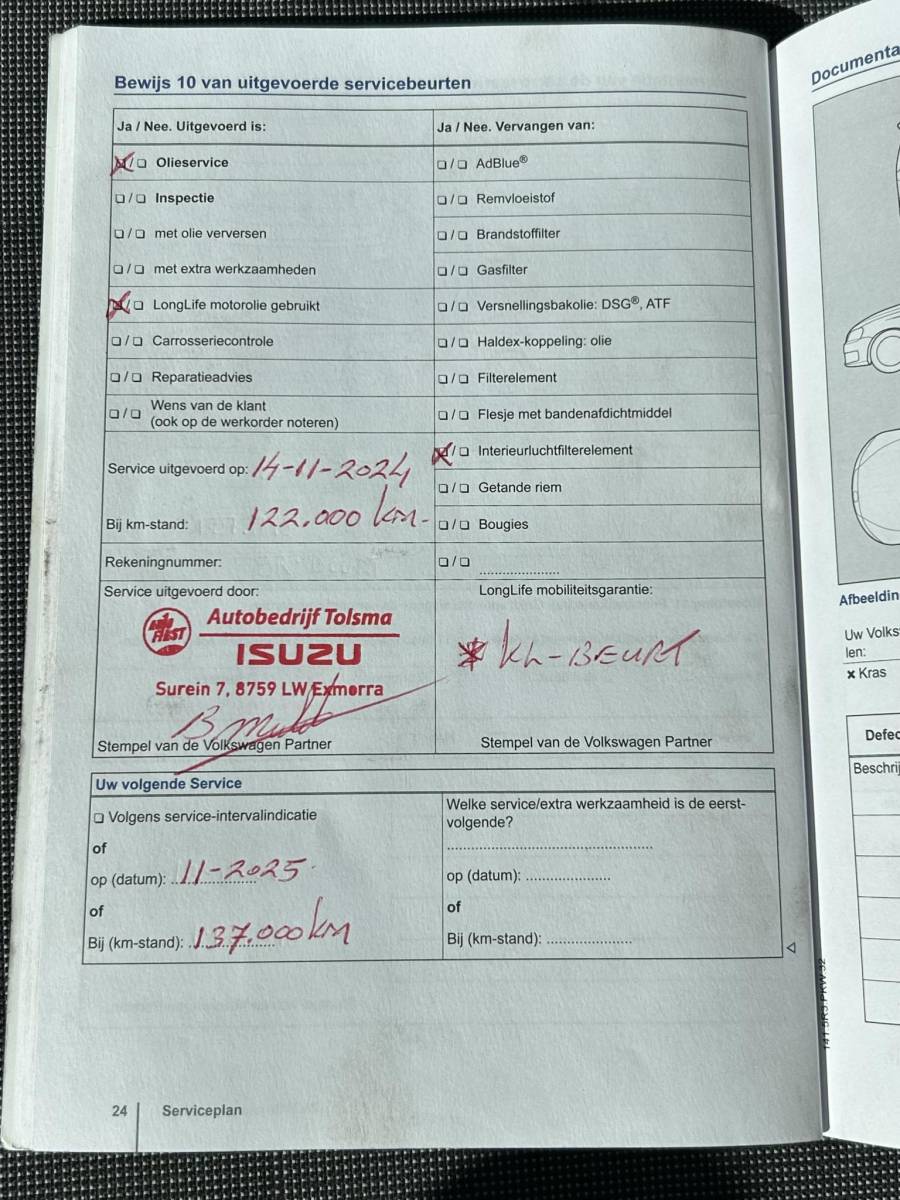 Bewijs 10 van uitgevoerde servicebeurten
Ja / Nee. Uitgevoerd is:
☒/☐ Olieservice
☐/☐ Inspectie
☐/☐ met olie verversen
☐/☐ met extra werkzaamheden
☒/☐ LongLife motorolie gebruikt
☐/☐ Carrosseriecontrole
☐/☐ Reparatieadvies
☐/☐ Wens van de klant
(ook op de werkorder noteren)
Service uitgevoerd op: 14-11-2024
Bij km-stand: 122.000 km-
Rekeningnummer:
Service uitgevoerd door:
Autobedrijf Tolsma
ISUZU
Surein 7, 8759 LW Exmorra
Stempel van de Volkswagen Partner
Ja / Nee. Vervangen van:
☐/☐ AdBlue®
☐/☐ Remvloeistof
☐/☐ Brandstoffilter
☐/☐ Gasfilter
☐/☐ Versnellingsbakolie: DSG®, ATF
☐/☐ Haldex-koppeling: olie
☐/☐ Filterelement
☐/☐ Flesje met bandenafdichtmiddel
☒/☐ Interieurluchtfilterelement
☐/☐ Getande riem
☐/☐ Bougies
☐/☐ ....................
LongLife mobiliteitsgarantie:
* KL-BEURT
Stempel van de Volkswagen Partner
Uw volgende Service
☐ Volgens service-intervalindicatie
of
op (datum): 11-2025
of
Bij (km-stand): 137.000 km
Welke service/extra werkzaamheid is de eerst-
volgende?
op (datum): ....................
of
Bij (km-stand): ....................
24 Serviceplan
Documenta
Afbeeldin
Uw Volks
len:
× Kras
Defec
Beschrij